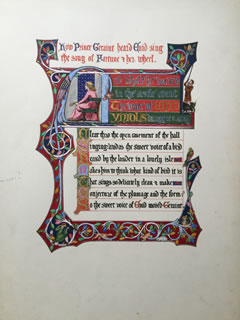 How Prince Geraint heard Enid sing
the song of Fortune & her wheel.
in the castle court
Yniol's
hear thro the open casement of the hall
inging; and as the sweet voice of a bird
eard by the lander in a lonely isle
akes him think what kind of bird it is
hat sings so delicately clear & make
onjecture of the plumage and the form;
o the sweet voice of Enid moved Geraint